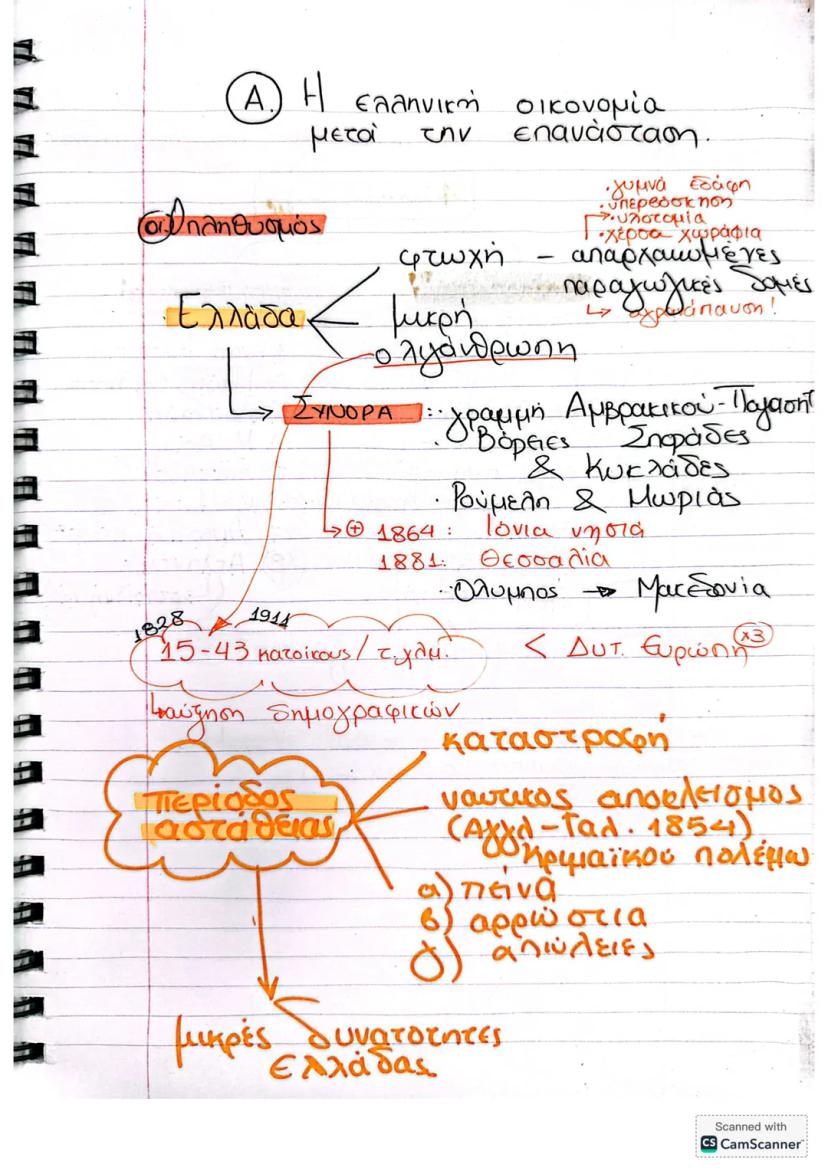 Α. Η ελληνική οικονομία
μετά την επανάσταση.
α. Πληθυσμός
· γυμνά εδάφη
· υπερβόσκηση
· υλοτομία
· χέρσα χωράφια
Ελλάδα
φτωχή – απαρχαιωμένες
παραγωγικές δομές
↳ αγρανάπαυση!
μικρή
ολιγάνθρωπη
ΣΥΝΟΡΑ : · γραμμή Αμβρακικού-Παγασητ
· Βόρειες Σποράδες
& Κυκλάδες
· Ρούμελη & Μωριάς
↳ ⊕ 1864: Ιόνια νησιά
1881: Θεσσαλία
· Όλυμπος → Μακεδονία
1828 1911
15-43 κατοίκους/τ.χλμ. < Δυτ. Ευρώπη x3
↳ αύξηση δημογραφικών
περίοδος
αστάθειας
καταστροφή
ναυτικος αποκλεισμος
(Αγγλ-Γαλ. 1854)
Κριμαϊκού πολέμου
α) πείνα
β) αρρώστια
γ) απώλειες
μικρές δυνατότητες
Ελλάδας
Scanned with
CS CamScanner